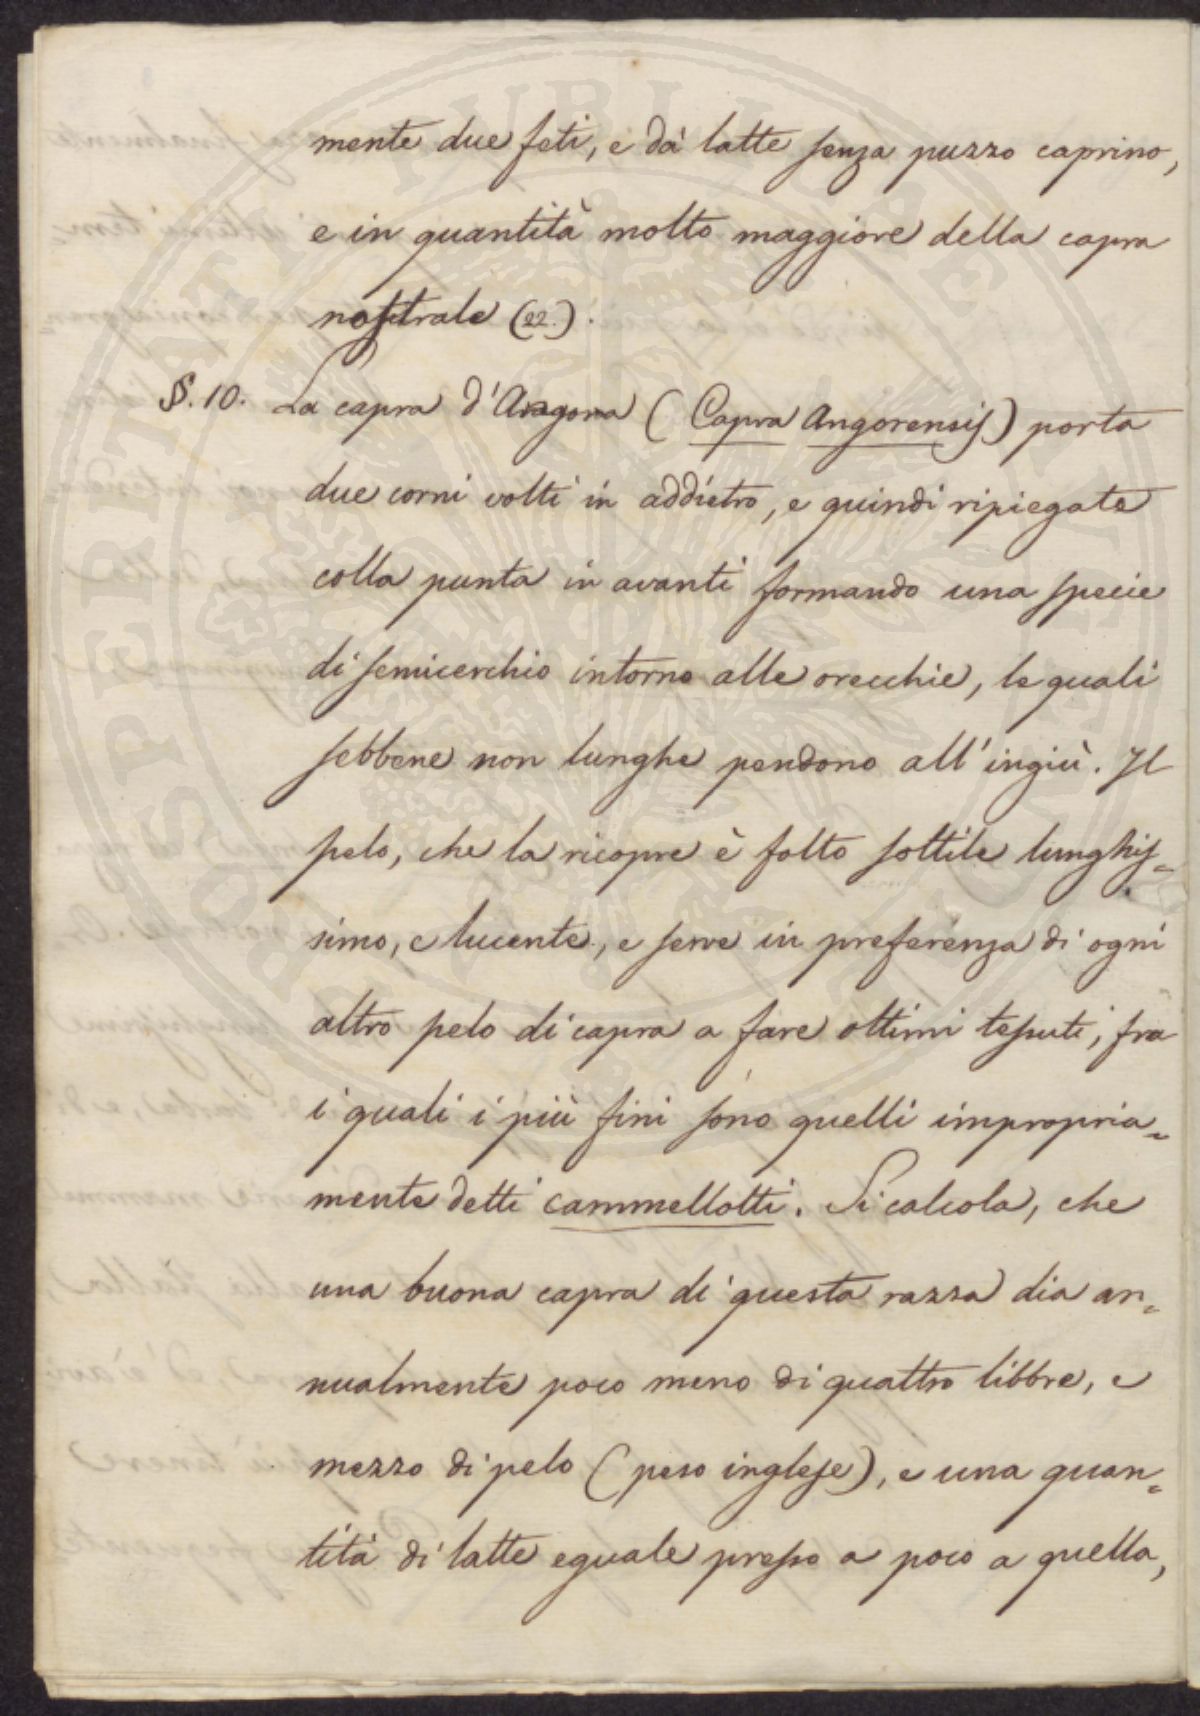 mente due feti, e dà latte senza puzzo caprino,
e in quantità molto maggiore della capra
nostrale (22.).
§. 10. La capra d'Angora (Capra Angorensis) porta
due corni volti in addietro, e quindi ripiegate
colla punta in avanti formando una specie
di semicerchio intorno alle orecchie, le quali
sebbene non lunghe pendono all'ingiù. Il
pelo, che la ricopre è folto sottile lunghis=
simo, e lucente, e serve in preferenza di ogni
altro pelo di capra a fare ottimi tessuti, fra
i quali i più fini sono quelli impropria=
mente detti cammellotti. Si calcola, che
una buona capra di questa razza dia an=
nualmente poco meno di quattro libbre, e
mezzo di pelo (peso inglese), e una quan=
tità di latte eguale presso a poco a quella,
PROSPERITATI PUBLICAE AUGENDAE